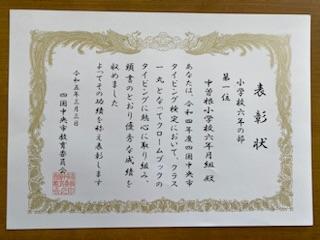 表彰状
小学校六年の部
第一位
中曽根小学校六年月組殿
あなたは、令和四年度四国中央市
タイピング検定において、クラス
一丸となってクロームブックの
タイピングに熱心に取り組み、
頭書のとおり優秀な成績を
収めました
よってその功績を称え表彰します
令和五年三月三日
四国中央市教育委員会